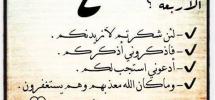 الأربعة ؟
٤
✓ - لئن شكرتم لأزيدنكم .
✓ - فاذكروني أذكركم .
✓ - أدعوني استجب لكم .
✓ - وماكان الله معذبهم وهم يستغفرون .